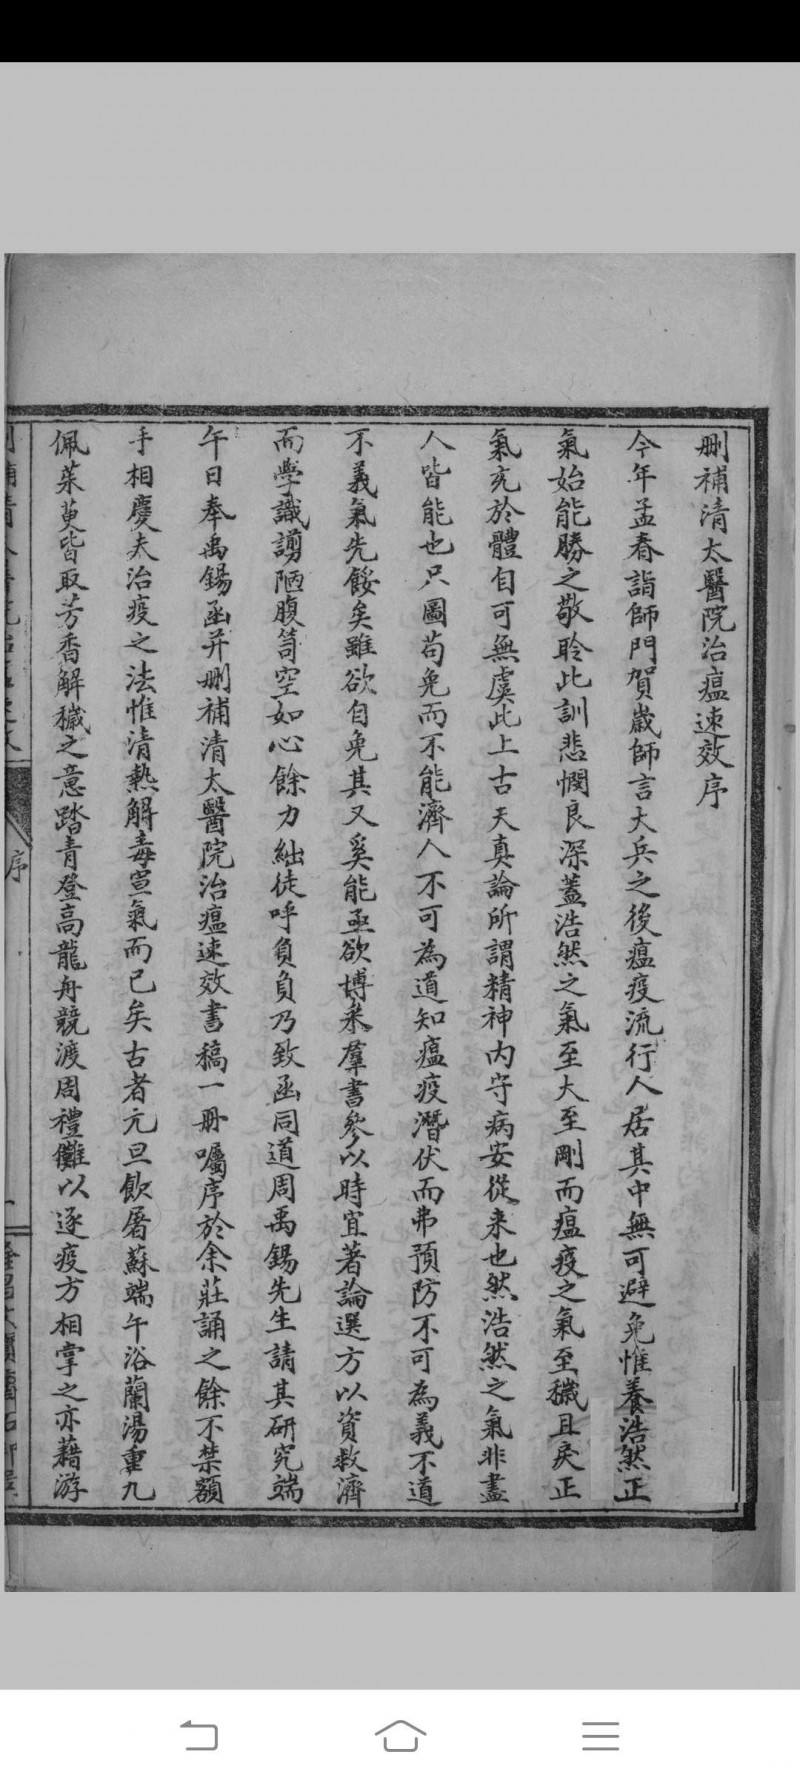 刪補清太醫院治瘟速效序
今年孟春詣師門賀歲師言大兵之後瘟疫流行人居其中無可避免惟養浩然正
氣始能勝之敬聆此訓悲憫良深蓋浩然之氣至大至剛而瘟疫之氣至穢且戾正
氣充於體自可無虞此上古天真論所謂精神內守病安從来也然浩然之氣非盡
人皆能也只圖苟免而不能濟人不可為道知瘟疫潛伏而弗預防不可為義不道
不義氣先餒矣雖欲自免其又奚能亟欲博采羣書參以時宜著論選方以資救濟
而學識謭陋腹笥空如心餘力絀徒呼負負乃致函同道周禹錫先生請其研究端
午日奉禹錫函并刪補清太醫院治瘟速效書稿一冊囑序於余莊誦之餘不禁額
手相慶夫治疫之法惟清熱解毒宣氣而已矣古者元旦飲屠蘇端午浴蘭湯重九
佩茱萸皆取芳香解穢之意踏青登高龍舟競渡周禮儺以逐疫方相掌之亦藉游
序
一